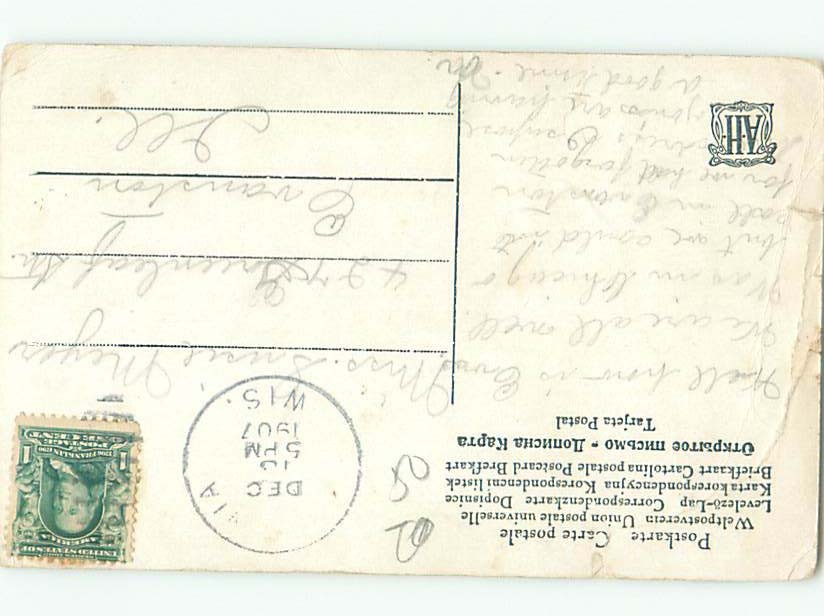 Postkarte Carte postale
Weltpostverein Union postale universelle
Levelező-Lap Correspondenzkarte Dopisnice
Karta korespondencyjna Korespondenční listek
Briefkaart Cartolina postale Postcard Brefkort
Открытое письмо - Дописна Карта
Tarjeta Postal
UNITED STATES OF
AMERICA
1706 FRANKLIN 1790
1 POSTAGE 1
ONE CENT
DEC
13
5 PM
1907
WIS.
Well how is
We are all well.
Was in Chicago
but we could not
call in Evanston
for we had forgotten
suppose
are having
a good time.
Miss. Susie Meyer
427 Greenleaf St.
Evanston
Ill.
A.H